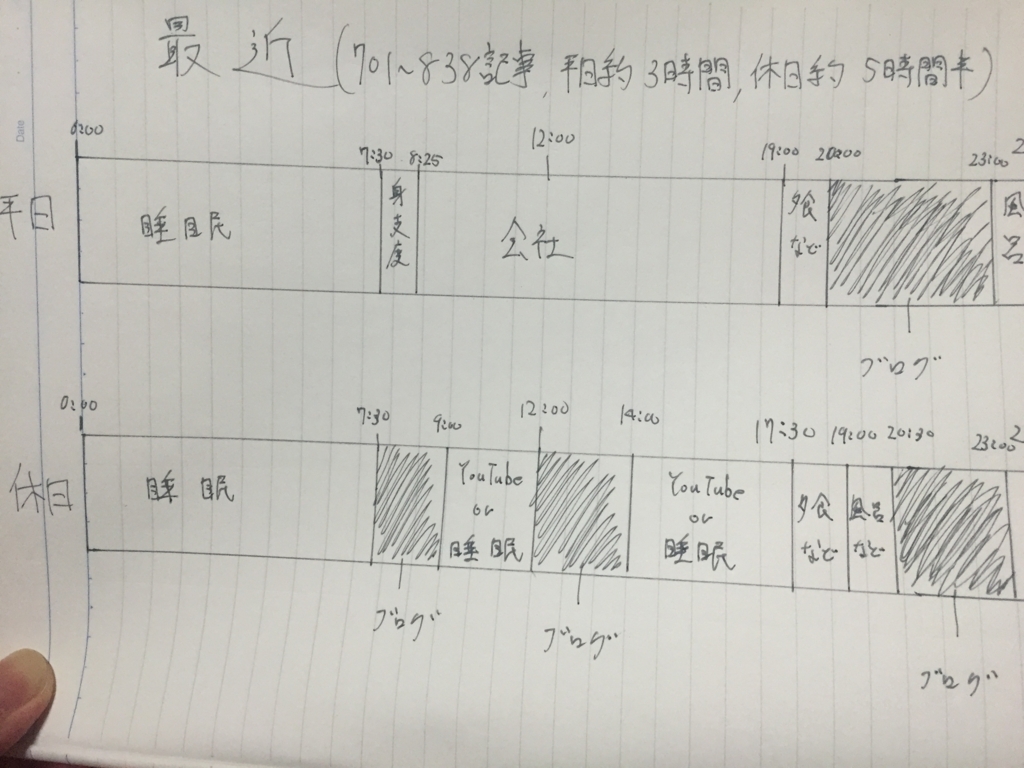 最近(701~838記事,平日約3時間,休日約5時間半)
Date
0:00 7:30 8:25 12:00 19:00 20:00 23:00 2
平日 睡眠 身支度 会社 夕食など 風呂
ブログ
0:00 7:30 9:00 12:00 14:00 17:30 19:00 20:30 23:00 2
休日 睡眠 YouTube or 睡眠 YouTube or 睡眠 夕食など 風呂など
ブログ ブログ ブログ